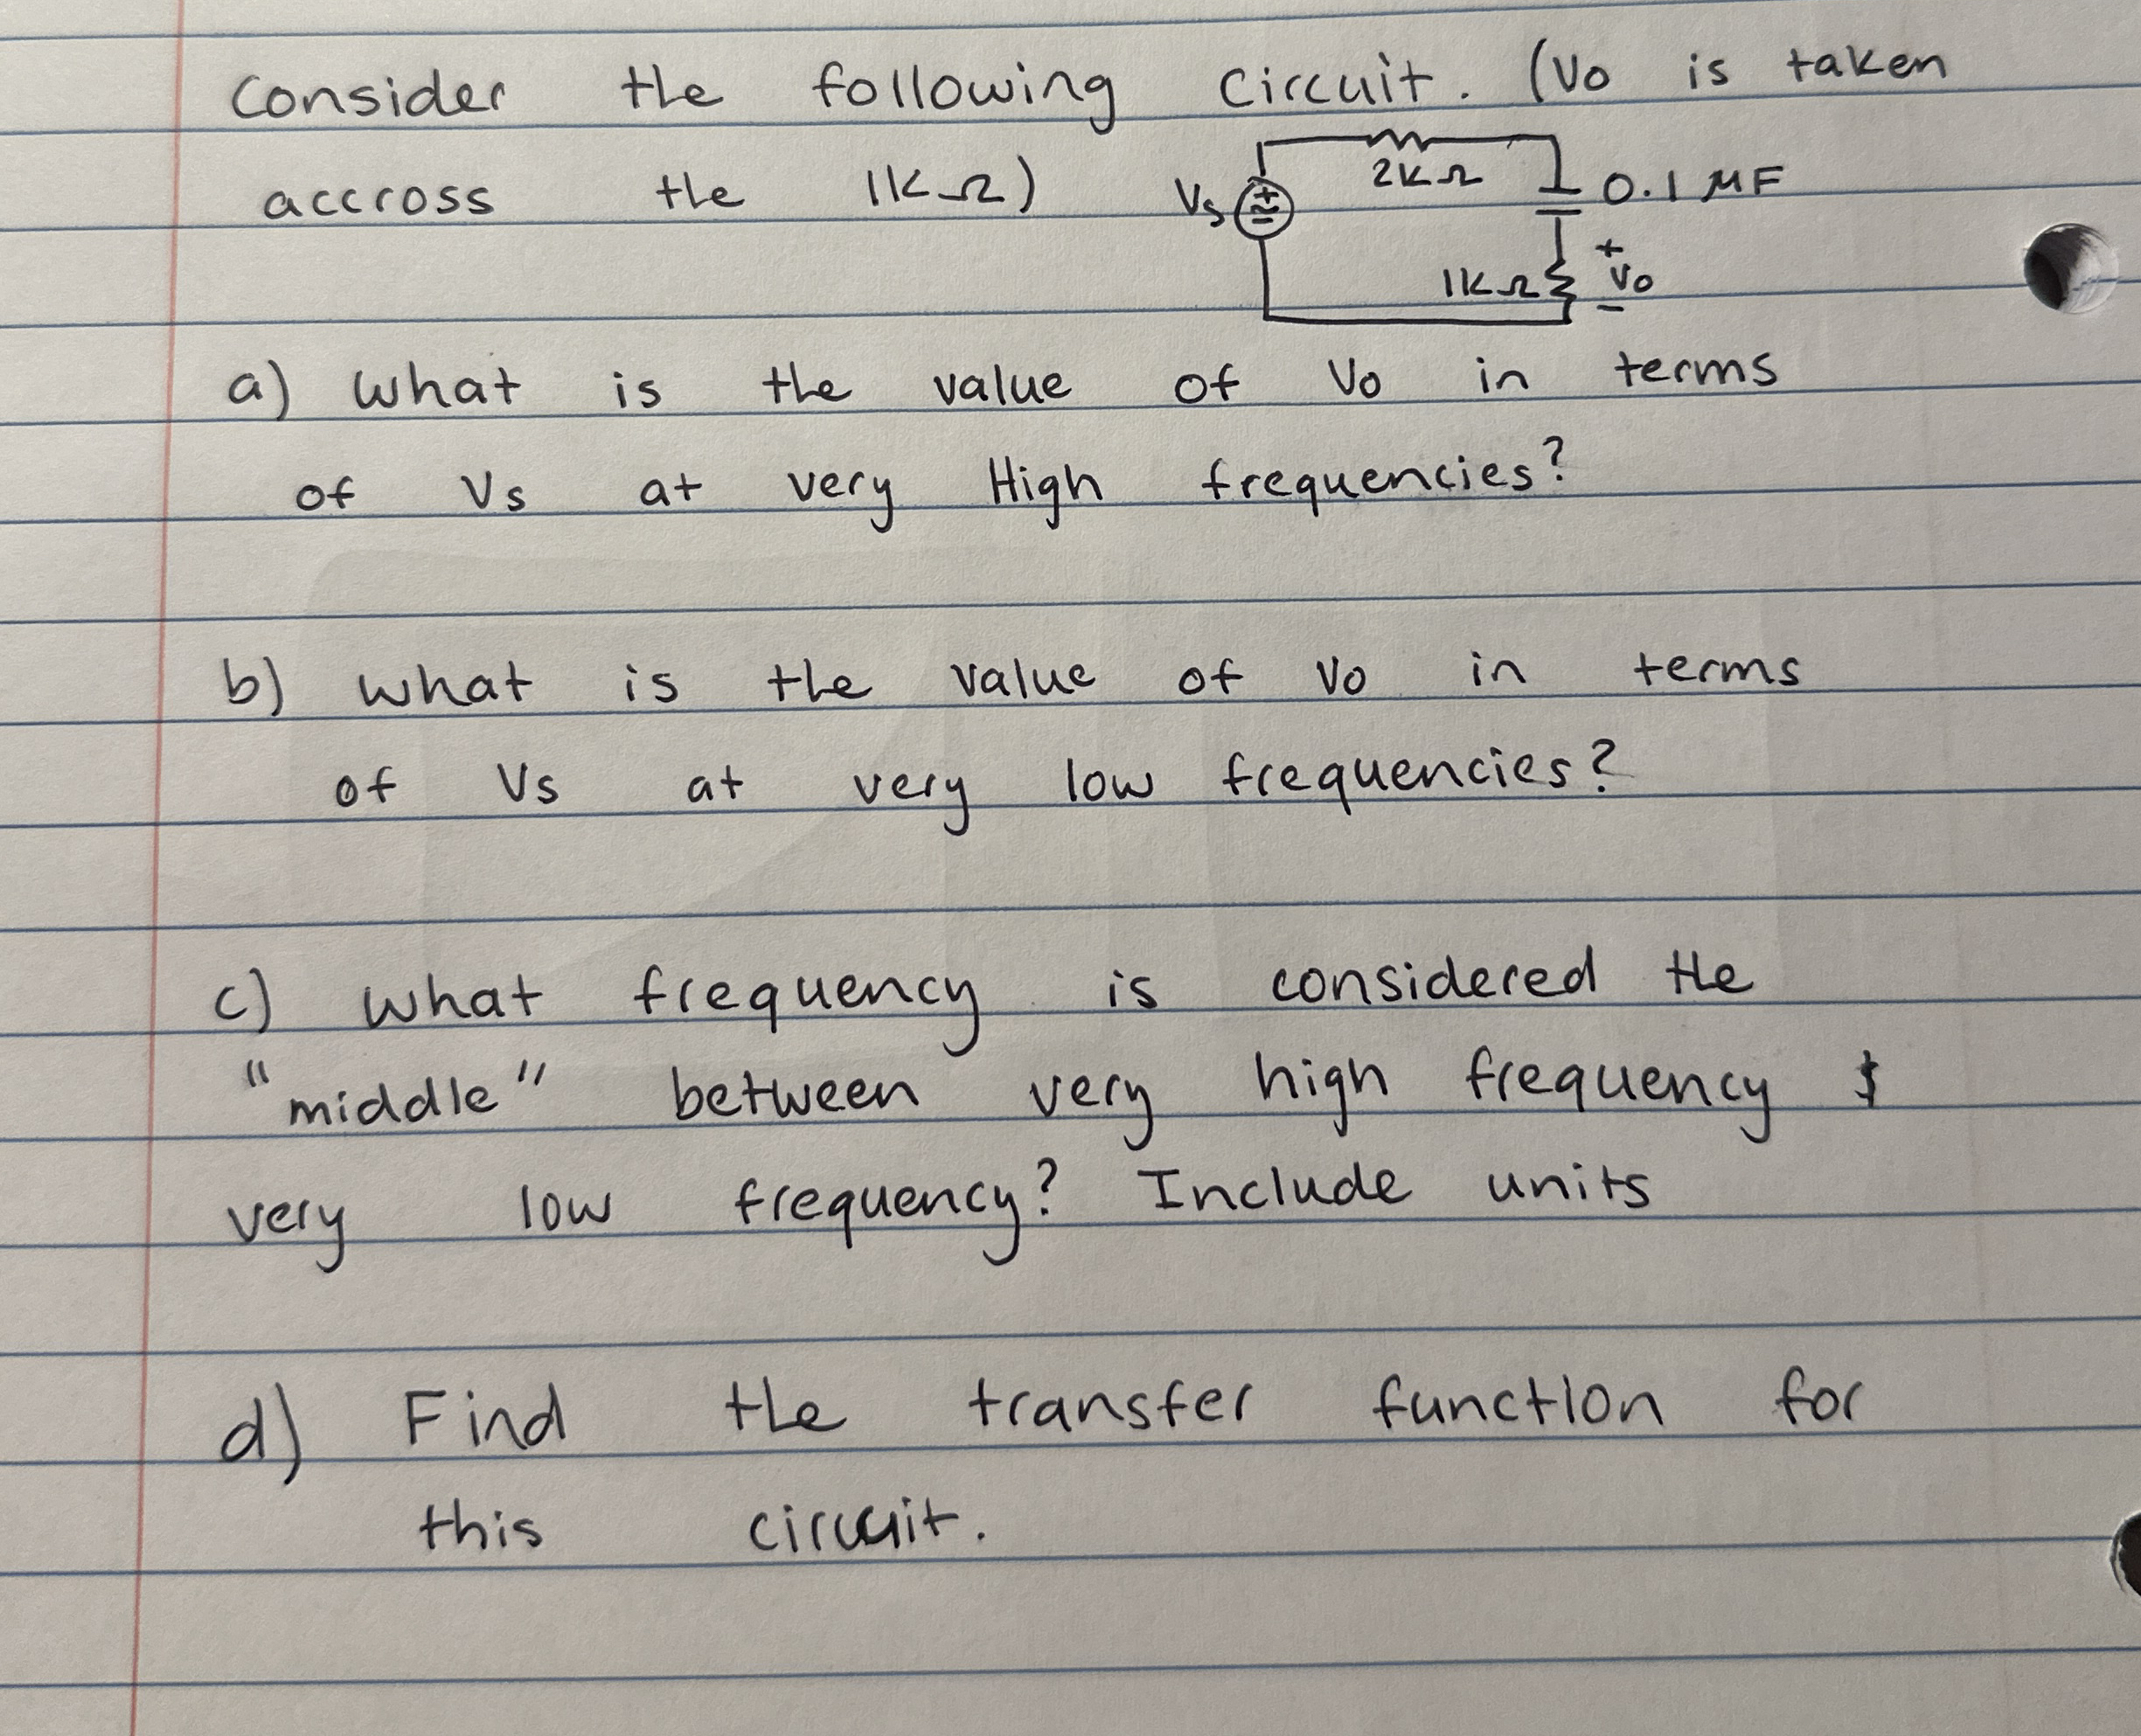 Consider the following circuit. (Vo is taken
accross the 1kΩ)
Vs
+
−
2kΩ
0.1 μF
1kΩ
+
Vo
−
a) what is the value of Vo in terms
of Vs at very High frequencies?
b) what is the value of Vo in terms
of Vs at very low frequencies?
c) what frequency is considered the
"middle" between very high frequency &
very low frequency? Include units
d) Find the transfer function for
this circuit.